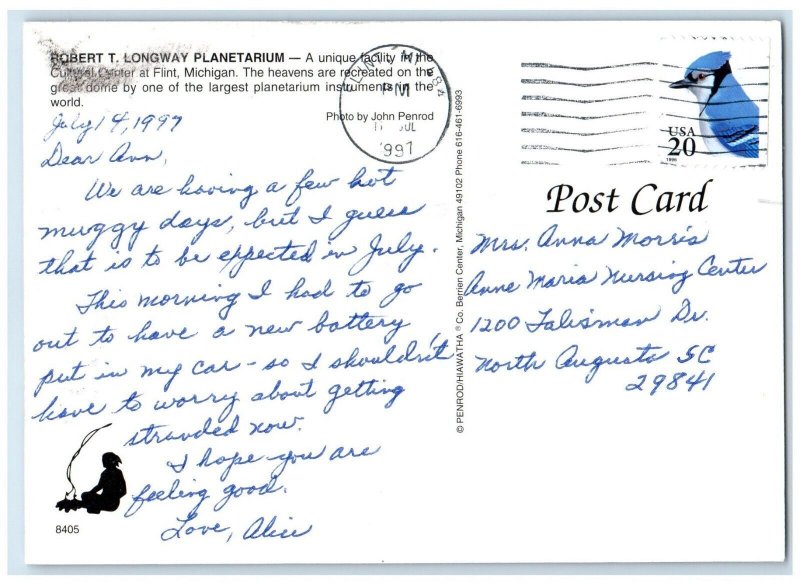 ROBERT T. LONGWAY PLANETARIUM — A unique facility in the
Cultural Center at Flint, Michigan. The heavens are recreated on the
great dome by one of the largest planetarium instruments in the
world.
Photo by John Penrod
July 14, 1997
Dear Ann,
We are having a few hot
muggy days, but I guess
that is to be expected in July.
This morning I had to go
out to have a new battery
put in my car - so I shouldn't
have to worry about getting
stranded now.
I hope you are
feeling good.
Love, Alice
8405
© PENROD/HIAWATHA ® Co. Berrien Center, Michigan 49102 Phone 616-461-6993
PM
JUL
1997
USA
20
1996
Post Card
Mrs. Anna Morris
Anne Maria Nursing Center
1200 Talisman Dr.
North Augusta SC
29841